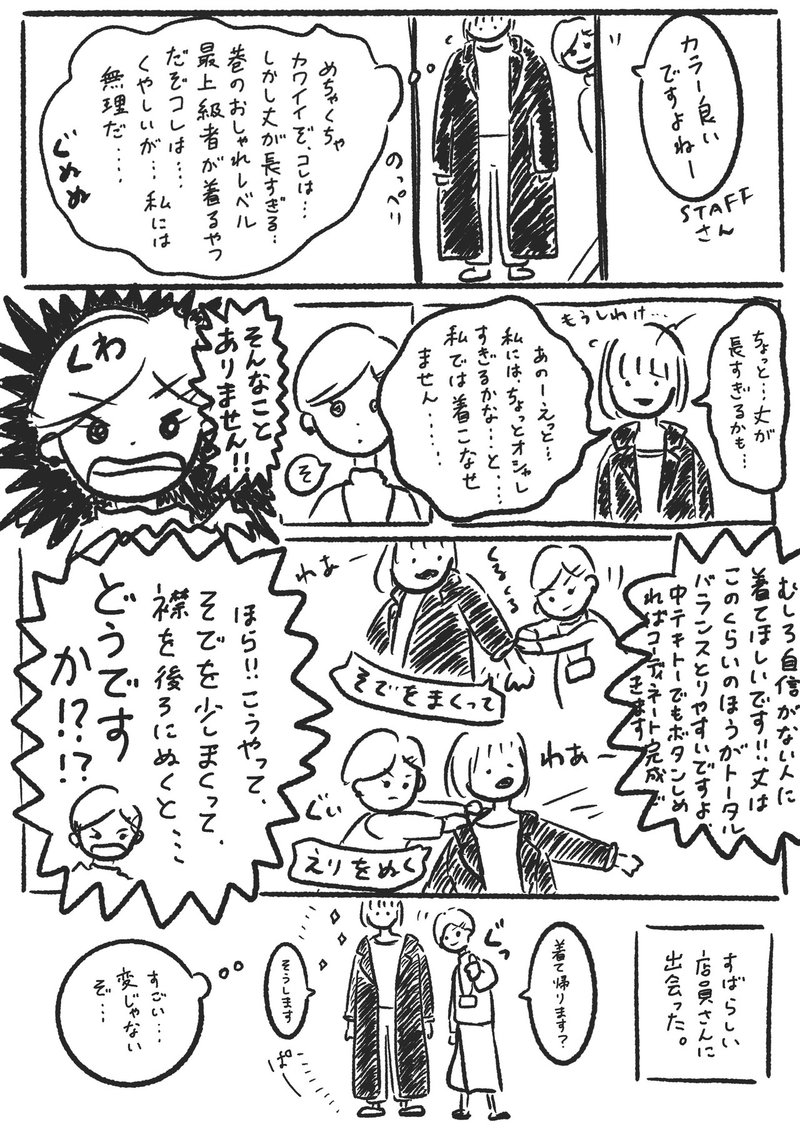 カラー良い
ですよねー
STAFF
さん
めちゃくちゃ
カワイイぞ、コレは…
しかし丈が長すぎる…
巷のおしゃれレベル
最上級者が着るやつ
だぞコレは……
くやしいが…私には
無理だ……
ぐぬぬ
のっぺり
ちょっと…丈が
長すぎるかも…
もうしわけ…
あのーえっと…
私には、ちょっとオシャレ
すぎるかな…と……
私では着こなせ
ません……
そ
そんなこと
ありません!!
くわ
むしろ自信がない人に
着てほしいです!!丈は
このくらいのほうがトータル
バランスとりやすいですよ、
中テキトーでもボタンしめ
ればコーディネート完成で
きます
わぁー
くるくる
そでをまくって
わあー
ぐい
えりをぬく
ほら!!こうやって、
そでを少しまくって、
襟を後ろにぬくと、…
どうです
か!?!?
すばらしい
店員さんに
出会った。
着て帰ります?
ぐっ
そうします
ぱー
すごい…
変じゃない
ぞ…